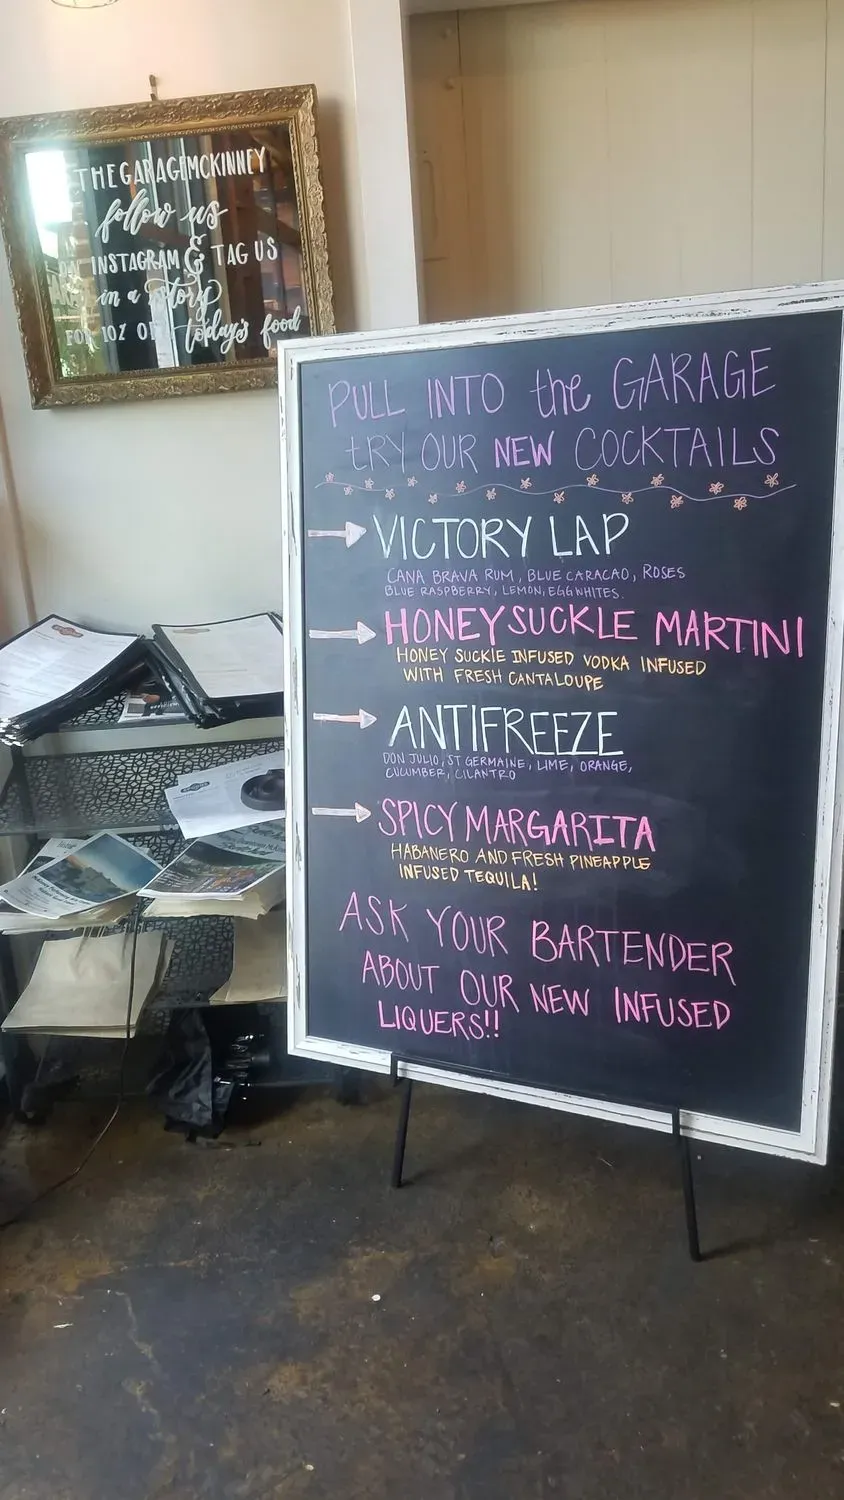 THEGARAGEMCKINNEY
follow us
INSTAGRAM & TAG US
in a story
FOR 10% OF today's food
PULL INTO the GARAGE
TRY OUR NEW COCKTAILS
VICTORY LAP
CANA BRAVA RUM, BLUE CARACAO, ROSES
BLUE RASPBERRY, LEMON, EGGWHITES.
HONEYSUCKLE MARTINI
HONEY SUCKLE INFUSED VODKA INFUSED
WITH FRESH CANTALOUPE
ANTIFREEZE
DON JULIO, ST GERMAINE, LIME, ORANGE,
CUCUMBER, CILANTRO
SPICY MARGARITA
HABANERO AND FRESH PINEAPPLE
INFUSED TEQUILA!
ASK YOUR BARTENDER
ABOUT OUR NEW INFUSED
LIQUERS!!